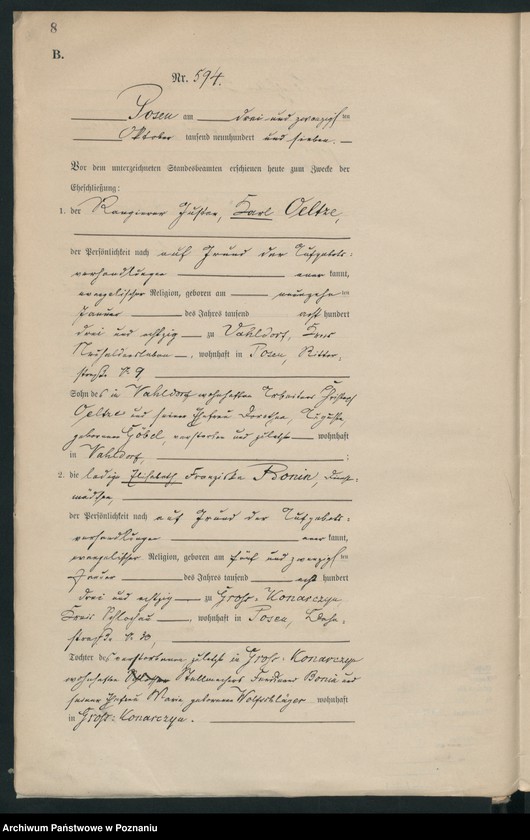 8
B.
Nr. 594.
Posen am drei und zwanzigsten
Oktober tausend neunhundert und sieben.
Vor dem unterzeichneten Standesbeamten erschienen heute zum Zwecke der
Eheschließung:
1. der Rangierer Gustav, Karl Oeltze,
der Persönlichkeit nach auf Grund der Aufgebots-
verhandlungen anerkannt,
evangelischer Religion, geboren am neunzehnten
Januar des Jahres tausend acht hundert
drei und achtzig zu Vahldorf, Kreis
Neuhaldensleben, wohnhaft in Posen, Ritter-
straße 9,
Sohn des in Vahldorf wohnhaften Arbeiters Christoph
Oeltze und seiner Ehefrau Dorothea, Auguste,
geborenen Göbel, verstorben und zuletzt wohnhaft
in Vahldorf;
2. die ledige Elisabeth Franziska Bonin, Dienst-
mädchen,
der Persönlichkeit nach auf Grund der Aufgebots-
verhandlungen anerkannt,
evangelischer Religion, geboren am fünf und zwanzigsten
Januar des Jahres tausend acht hundert
drei und achtzig zu Groß-Konarczyn,
Kreis Schlochau, wohnhaft in Posen,
straße
Tochter des verstorbenen zuletzt in Groß-Konarczyn
wohnhaften Stellmachers Ferdinand Bonin und
seiner Ehefrau Marie geborenen Wolfschläger wohnhaft
in Groß-Konarczyn.
Archiwum Państwowe w Poznaniu